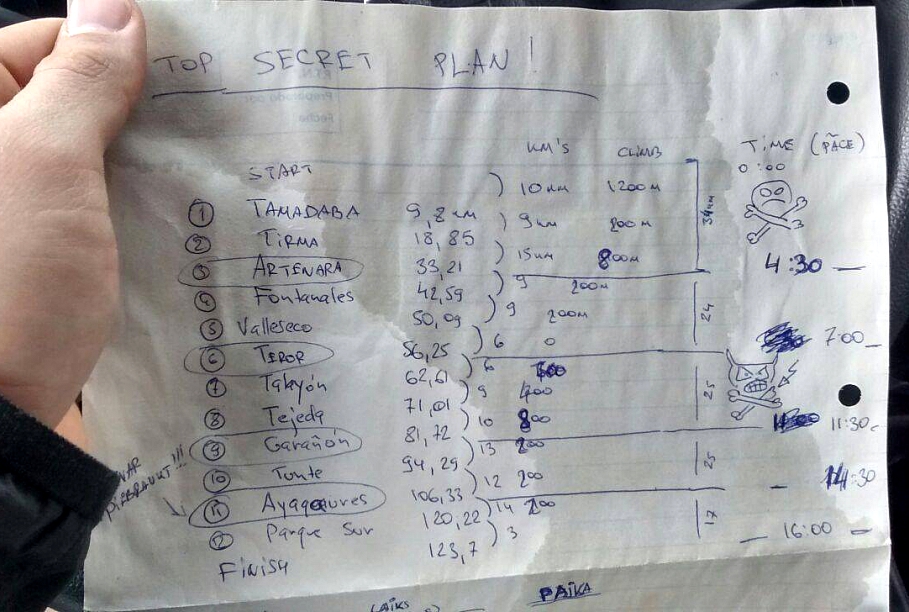 TOP SECRET PLAN!
KM'S CLIMB TIME (PACE)
START 0:00
10 KM 1200M
1 TAMADABA 9,8 KM
9 KM 800M
2 TIRMA 18,85
15 KM 800M 34KM
3 ARTENARA 33,21 4:30
9 200M
4 Fontanales 42,59
9 200M 24
5 Valleseco 50,09
6 0 7:00
6 TEROR 56,25
6
7 Takyón 62,61
9 400 25
8 Tejeda 71,01
10 800 11:30
9 Garañón 81,72
13 200 25
10 Tunte 94,29
12 200 14:30
11 Ayagaures 106,33
14 200 17
12 Parque Sur 120,22
3 16:00
FINISH 123,7
LAIKS PAIKA